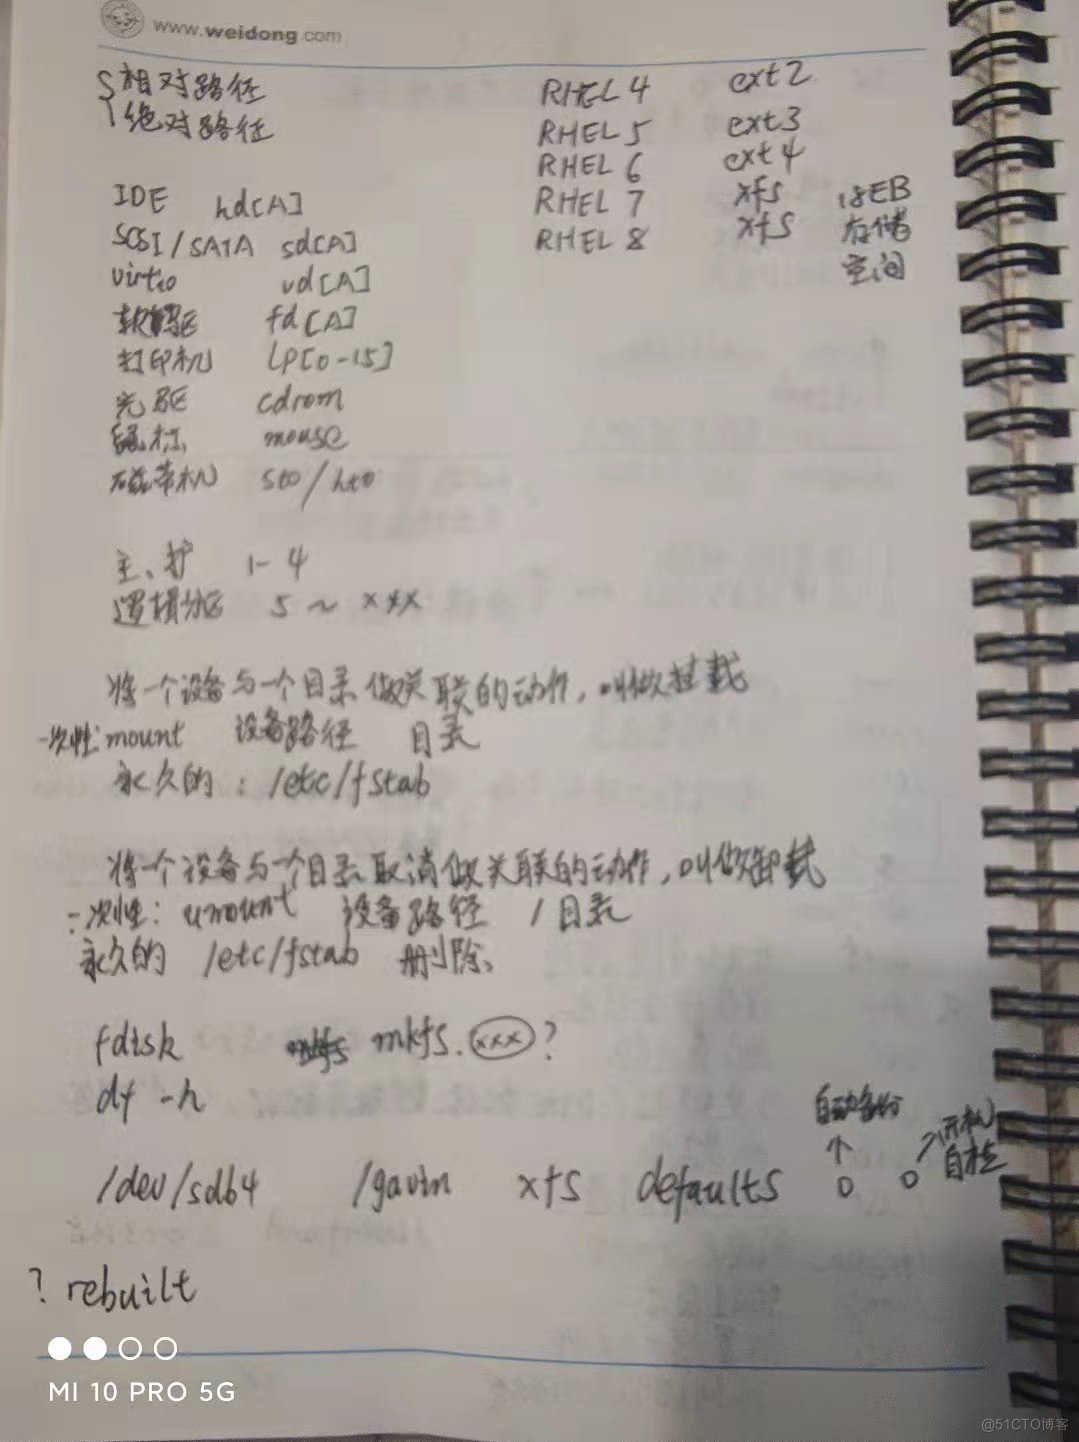 www.weidong.com
相对路径
绝对路径
RHEL 4 ext2
RHEL 5 ext3
RHEL 6 ext4
RHEL 7 xfs 18EB
RHEL 8 xfs 存储
空间
IDE hd[A]
SCSI/SATA sd[A]
virtio vd[A]
软驱 fd[A]
打印机 LP[0-15]
光驱 cdrom
鼠标 mouse
磁带机 st0/ht0
主、扩 1-4
逻辑分区 5~xxx
将一个设备与一个目录做关联的动作,叫做挂载
一次性:mount 设备路径 目录
永久的:/etc/fstab
将一个设备与一个目录取消做关联的动作,叫做卸载
一次性:umount 设备路径 /目录
永久的 /etc/fstab 删除、
fdisk mkfs.xxx?
df -h
自动备份
开机
自检
/dev/sdb4 /gavin xfs defaults 0 0
? rebuilt
MI 10 PRO 5G
@51CTO博客